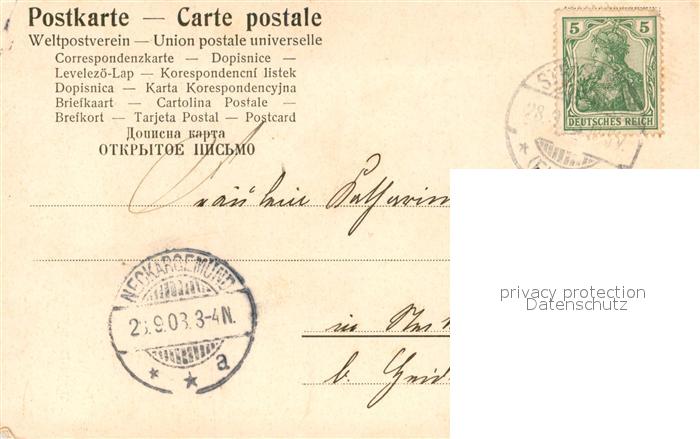 Postkarte — Carte postale
Weltpostverein — Union postale universelle
Correspondenzkarte — Dopisnice —
Levelező-Lap — Korespondencní listek
Dopisnica — Karta Korespondencyjna
Briefkaart — Cartolina Postale —
Brefkort — Tarjeta Postal — Postcard
Дописна карта
ОТКРЫТОЕ ПИСЬМО
5 5
DEUTSCHES REICH
Fräulein Katharin
privacy protection
Datenschutz
NECKARGEMÜND
9.03.3-4N.
a
in
b. Heid